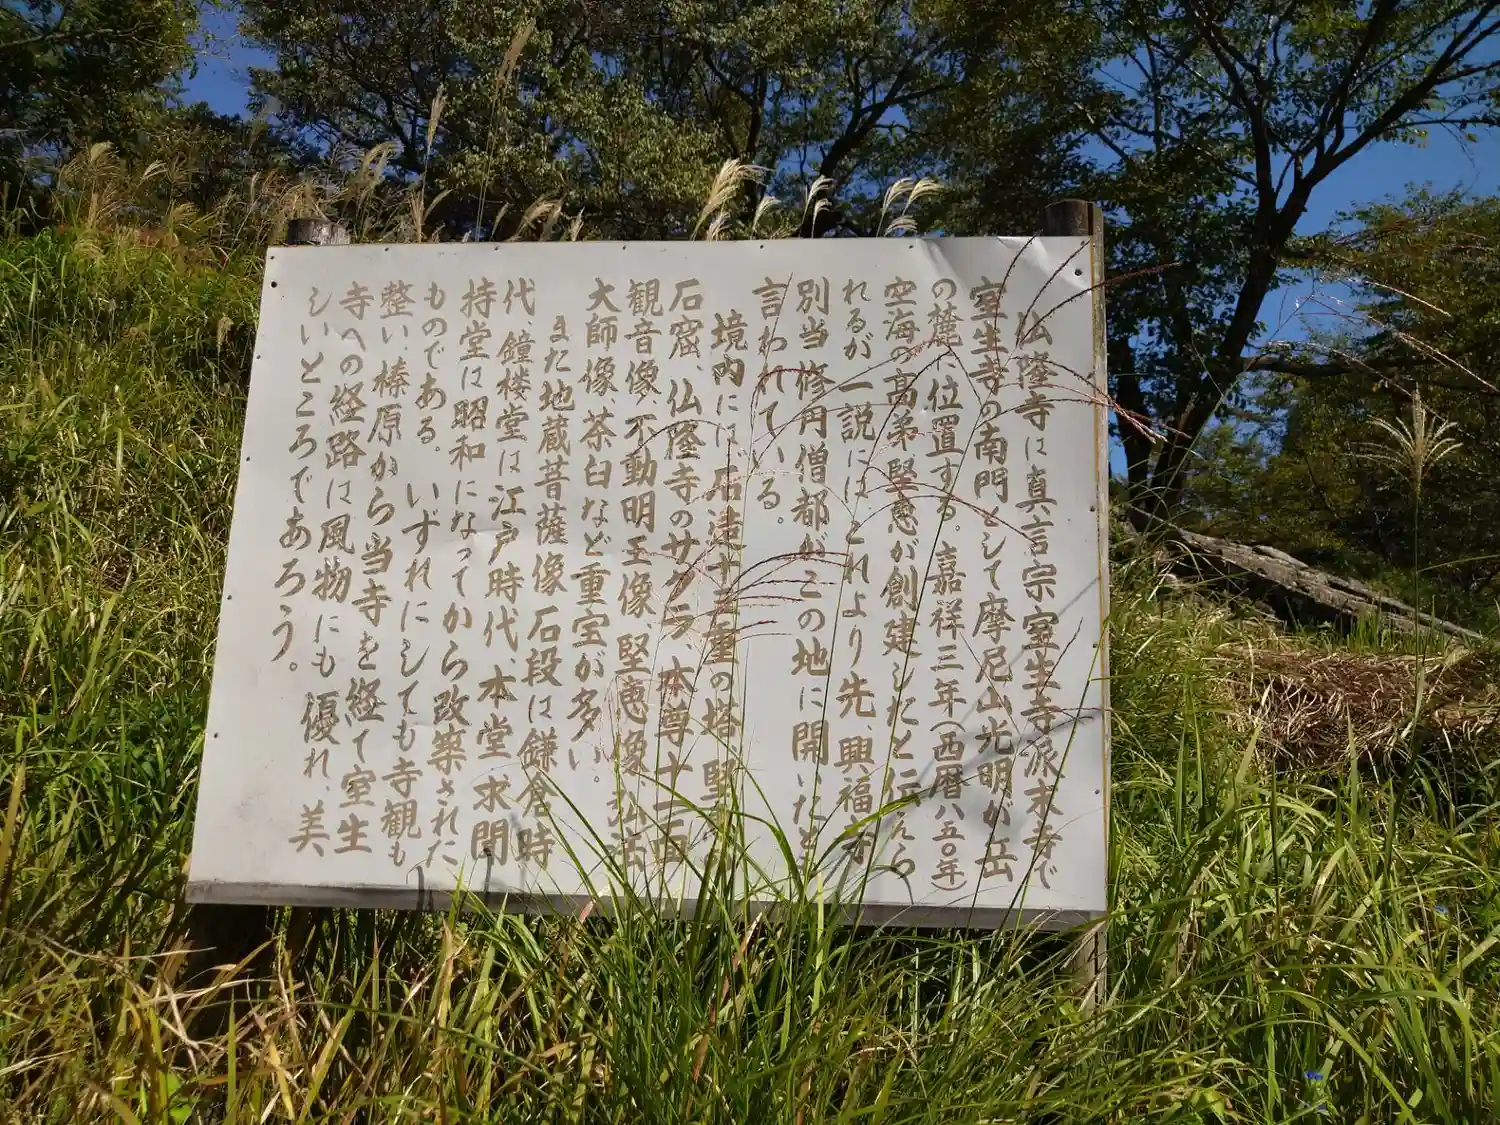 仏隆寺は真言宗室生寺派末寺で
室生寺の南門として摩尼山光明が岳
の麓に位置する。嘉祥三年(西暦八五〇年)
空海の高弟堅恵が創建したと伝えら
れるが一説にはこれより先、興福寺
別当修円僧都がこの地に開いたと
言われている。
境内には、石造十三重の塔、堅恵の
石窟、仏隆寺のサクラ、本尊十一面
観音像、不動明王像、堅恵像、弘法
大師像、茶臼など重宝が多い。
また地蔵菩薩像、石段は鎌倉時
代、鐘楼堂は江戸時代、本堂、求聞
持堂は昭和になってから改築された
ものである。いずれにしても寺観も
整い、榛原から当寺を経て室生
寺への経路は風物にも優れ、美
しいところであろう。